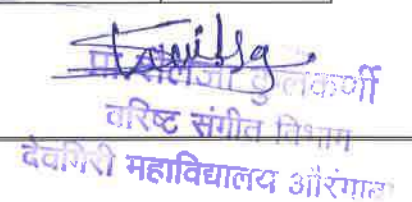 प्रा शैलजा कुलकर्णी
वरिष्ट संगीत विभाग
देवगिरी महाविद्यालय औरंगाबा